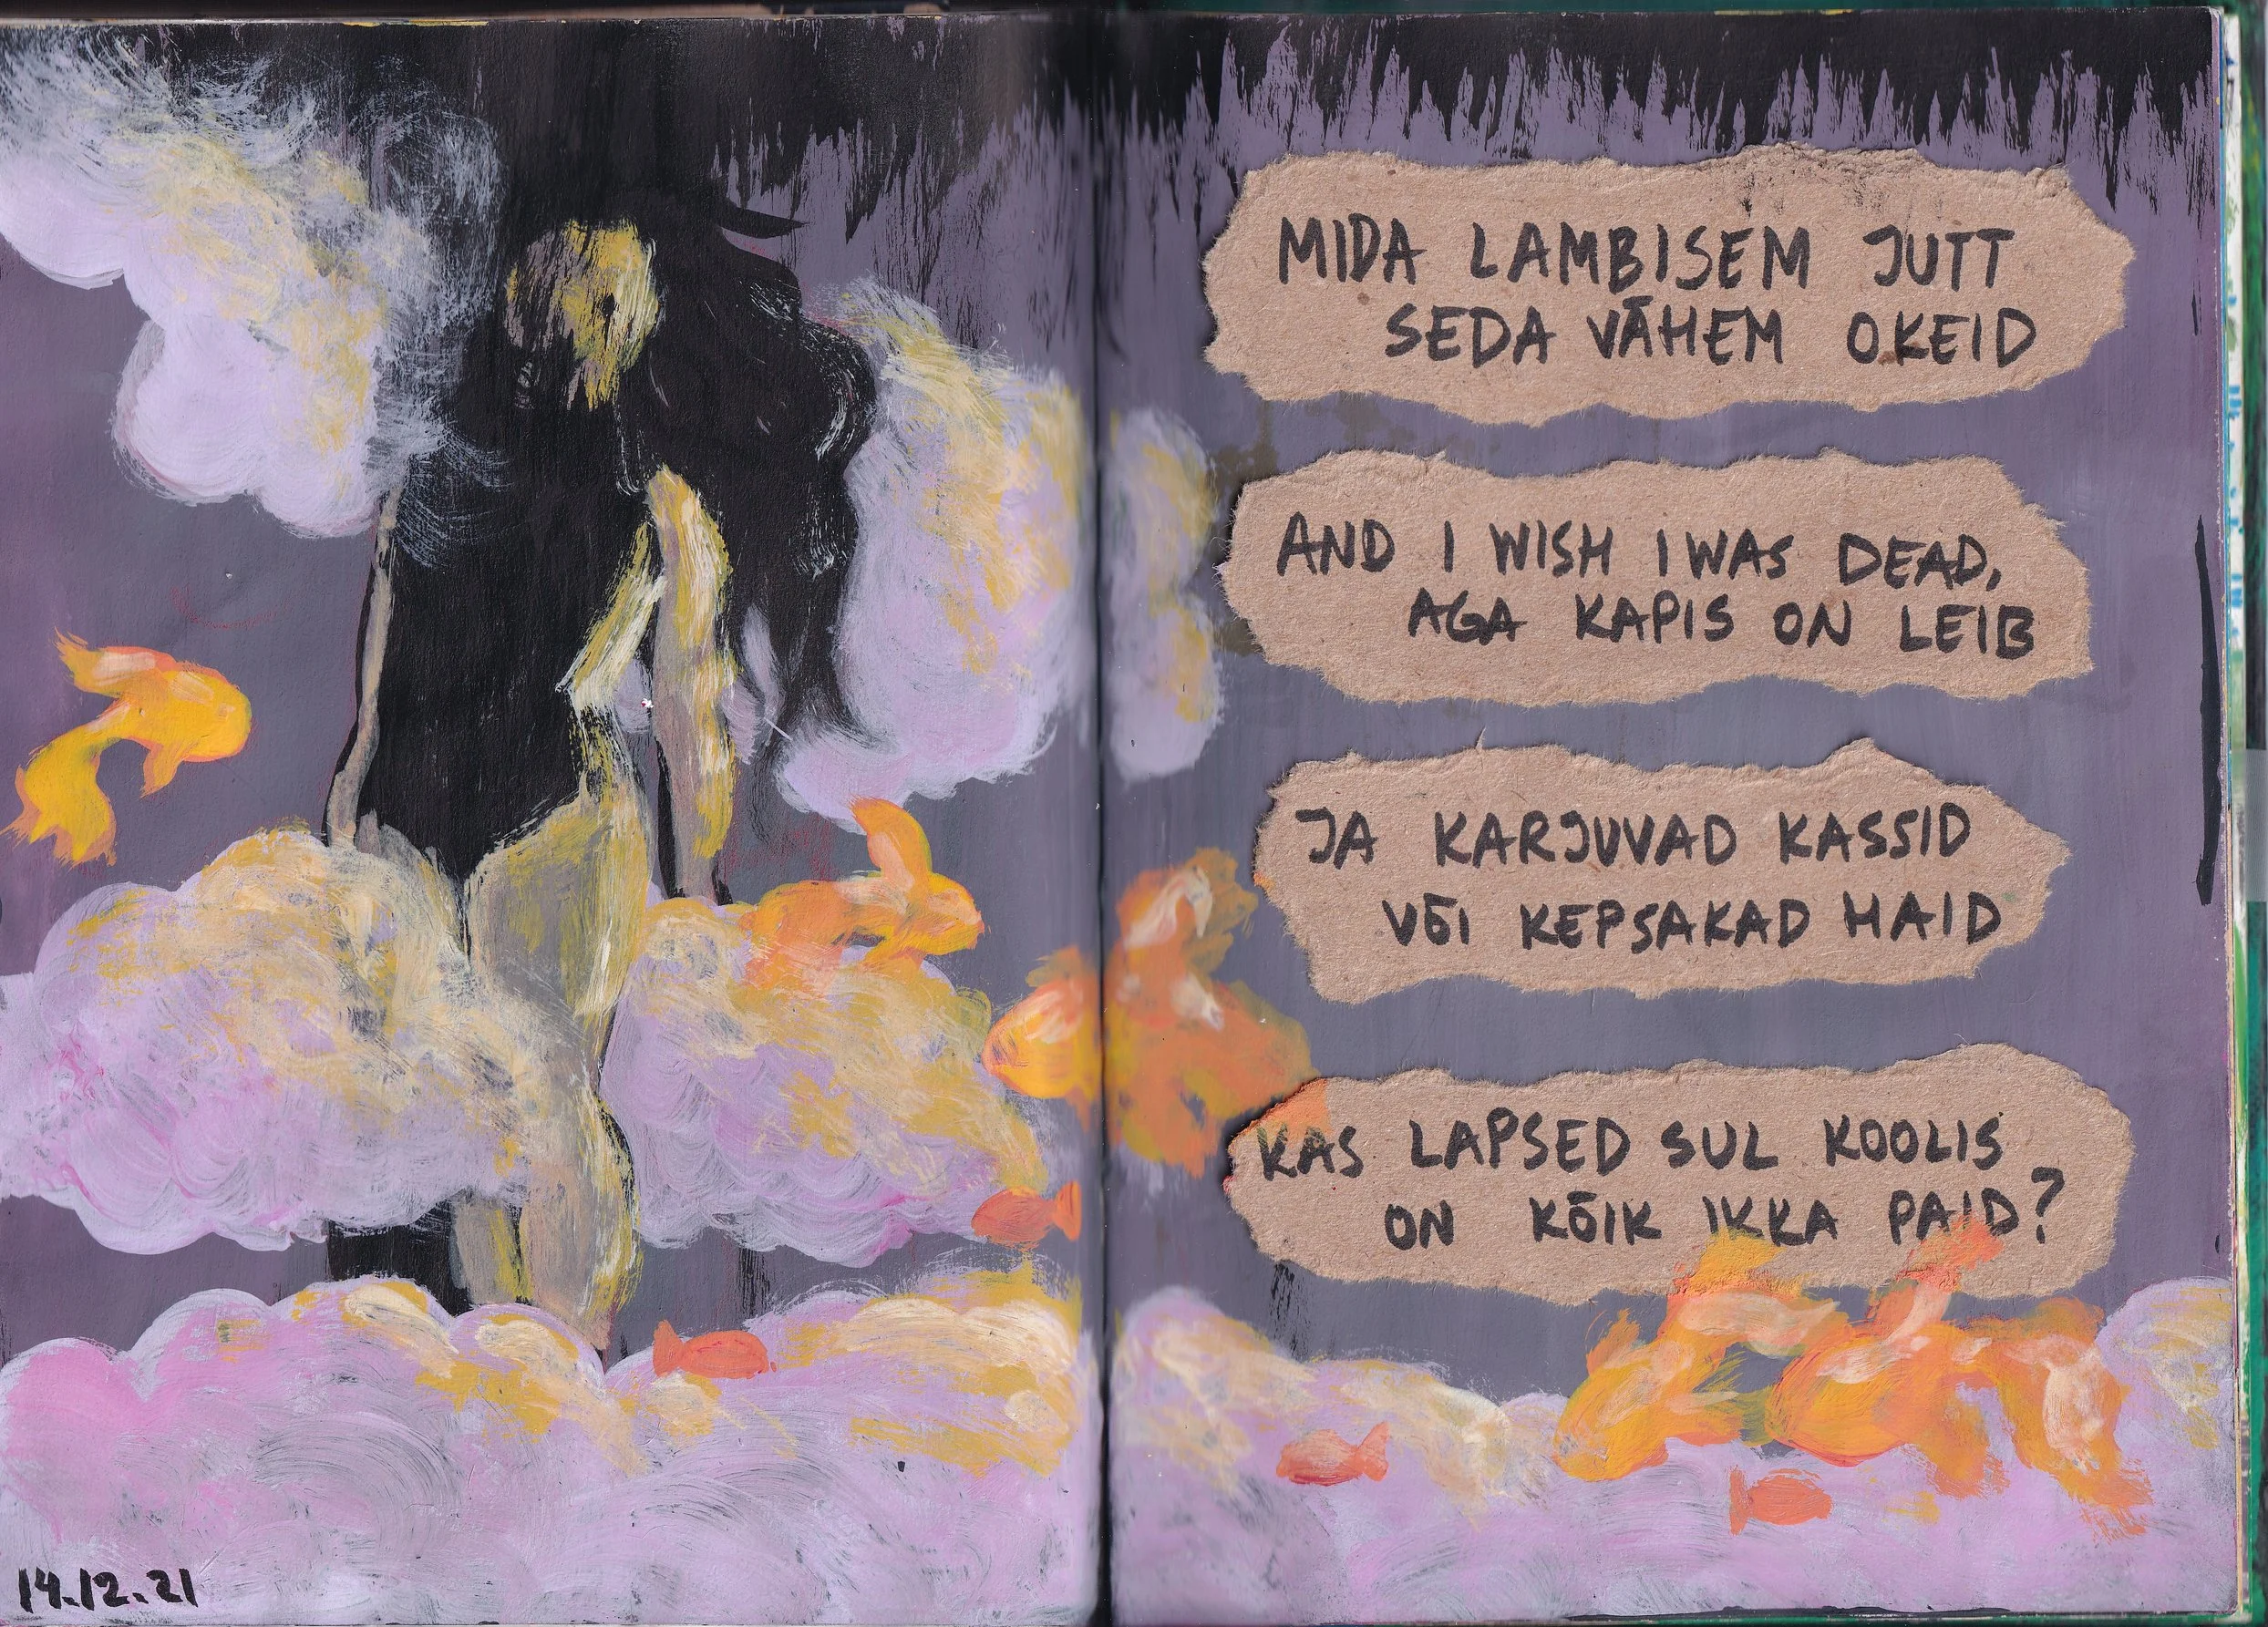 MIDA LAMBISEM JUTT
SEDA VÄHEM OKEID
AND I WISH I WAS DEAD,
AGA KAPIS ON LEIB
JA KARJUVAD KASSID
VÕI KEPSAKAD HAID
KAS LAPSED SUL KOOLIS
ON KÕIK IKKA PAID?
14.12.21